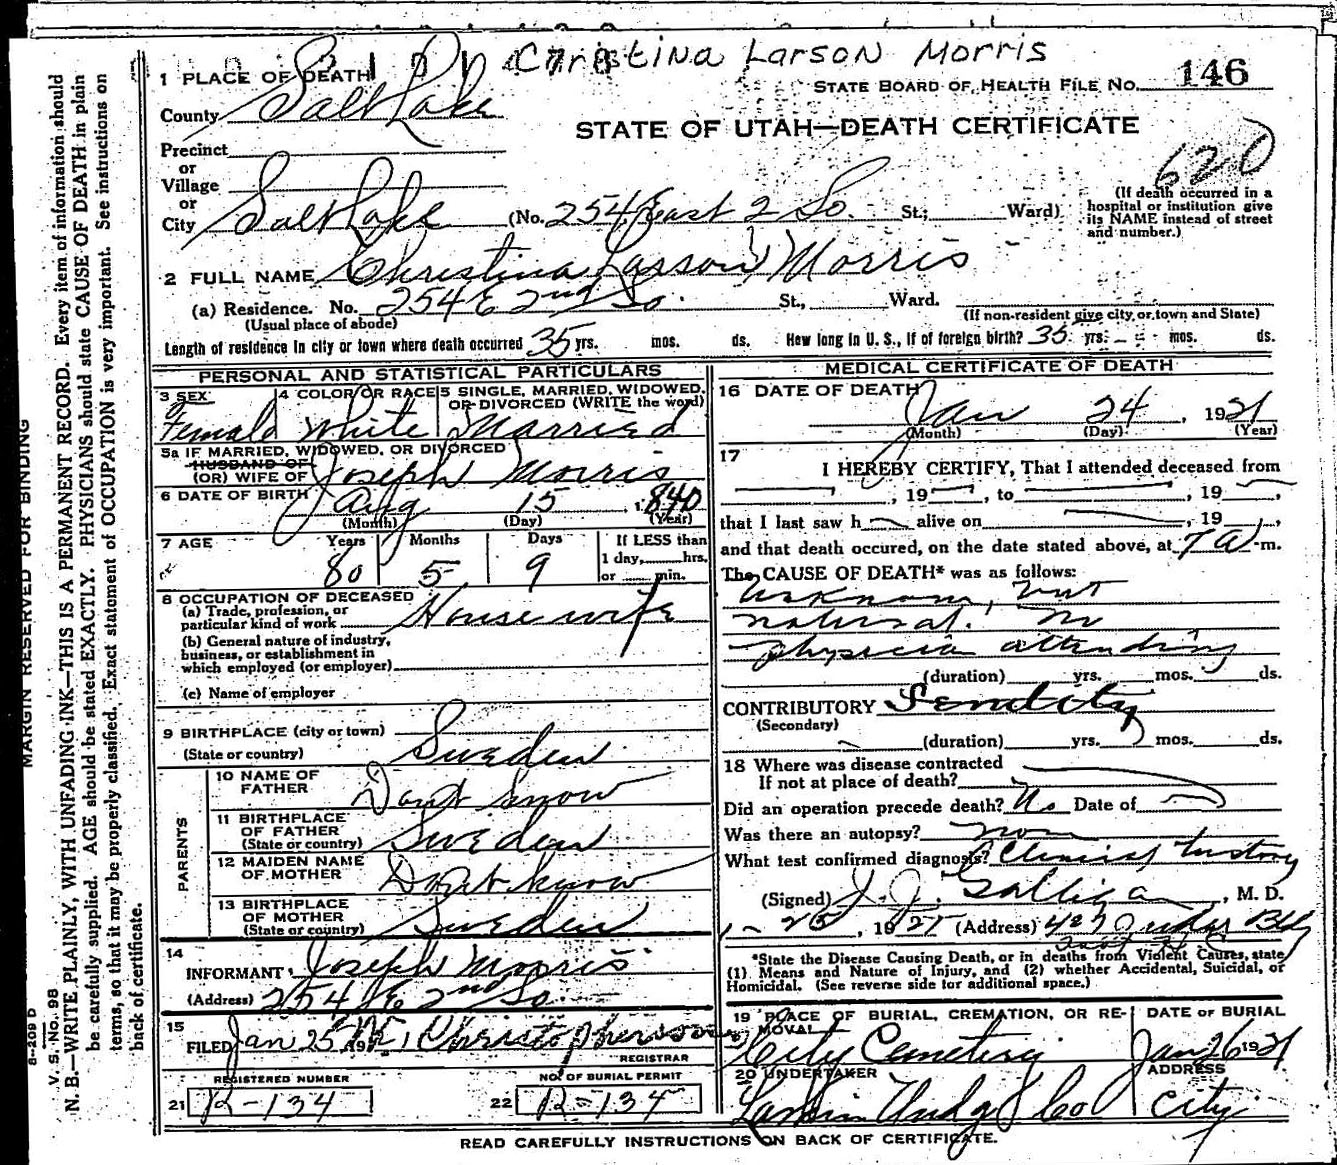 Christina Larson Morris
1 PLACE OF DEATH
STATE BOARD OF HEALTH FILE No. 146
County Salt Lake
STATE OF UTAH—DEATH CERTIFICATE
620
Precinct
or
Village
or
City Salt Lake (No. 254 East 2 So. St.; Ward)
(If death occurred in a hospital or institution give its NAME instead of street and number.)
2 FULL NAME Christina Larson Morris
(a) Residence. No. 254 E 2nd So. St., Ward.
(Usual place of abode)
(If non-resident give city, or town and State)
Length of residence in city or town where death occurred 35 yrs. mos. ds. How long in U. S., if of foreign birth? 35 yrs. mos. ds.
PERSONAL AND STATISTICAL PARTICULARS
3 SEX Female
4 COLOR OR RACE White
5 SINGLE, MARRIED, WIDOWED, OR DIVORCED (WRITE the word) Married
5a IF MARRIED, WIDOWED, OR DIVORCED
HUSBAND OF
(OR) WIFE OF Joseph Morris
6 DATE OF BIRTH Aug 15, 1840
(Month) (Day) (Year)
7 AGE Years Months Days If LESS than
1 day, hrs.
or min.
80 5 9
8 OCCUPATION OF DECEASED
(a) Trade, profession, or
particular kind of work House wife
(b) General nature of industry,
business, or establishment in
which employed (or employer)
(c) Name of employer
9 BIRTHPLACE (city or town)
(State or country) Sweden
PARENTS
10 NAME OF
FATHER Dont know
11 BIRTHPLACE
OF FATHER
(State or country) Sweden
12 MAIDEN NAME
OF MOTHER Dont know
13 BIRTHPLACE
OF MOTHER
(State or country) Sweden
14
INFORMANT Joseph Morris
(Address) 254 E 2nd So.
15
FILED Jan 25 192
REGISTRAR
REGISTERED NUMBER
21 R-134
NO. OF BURIAL PERMIT
22 R-134
MEDICAL CERTIFICATE OF DEATH
16 DATE OF DEATH Jan 24, 1921
(Month) (Day) (Year)
17
I HEREBY CERTIFY, That I attended deceased from
, 19 , to , 19 ,
that I last saw h alive on , 19 ,
and that death occured, on the date stated above, at 7 A-m.
The CAUSE OF DEATH* was as follows:
Unknown, but
natural. No
physician attending
(duration) yrs. mos. ds.
CONTRIBUTORY
(Secondary)
(duration) yrs. mos. ds.
18 Where was disease contracted
If not at place of death?
Did an operation precede death? No Date of
Was there an autopsy?
What test confirmed diagnosis? Clinical history
(Signed) J. J. Galligan, M. D.
1-25, 1921 (Address)
*State the Disease Causing Death, or in deaths from Violent Causes, state
(1) Means and Nature of Injury, and (2) whether Accidental, Suicidal, or
Homicidal. (See reverse side for additional space.)
19 PLACE OF BURIAL, CREMATION, OR RE-
MOVAL City Cemetery
DATE OF BURIAL
Jan 26 1921
20 UNDERTAKER
ADDRESS
City
READ CAREFULLY INSTRUCTIONS ON BACK OF CERTIFICATE.
MARGIN RESERVED FOR BINDING
V. S. No. 98
N. B.—WRITE PLAINLY, WITH UNFADING INK—THIS IS A PERMANENT RECORD. Every item of information should
be carefully supplied. AGE should be stated EXACTLY. PHYSICIANS should state CAUSE OF DEATH in plain
terms, so that it may be properly classified. Exact statement of OCCUPATION is very important. See instructions on
back of certificate.